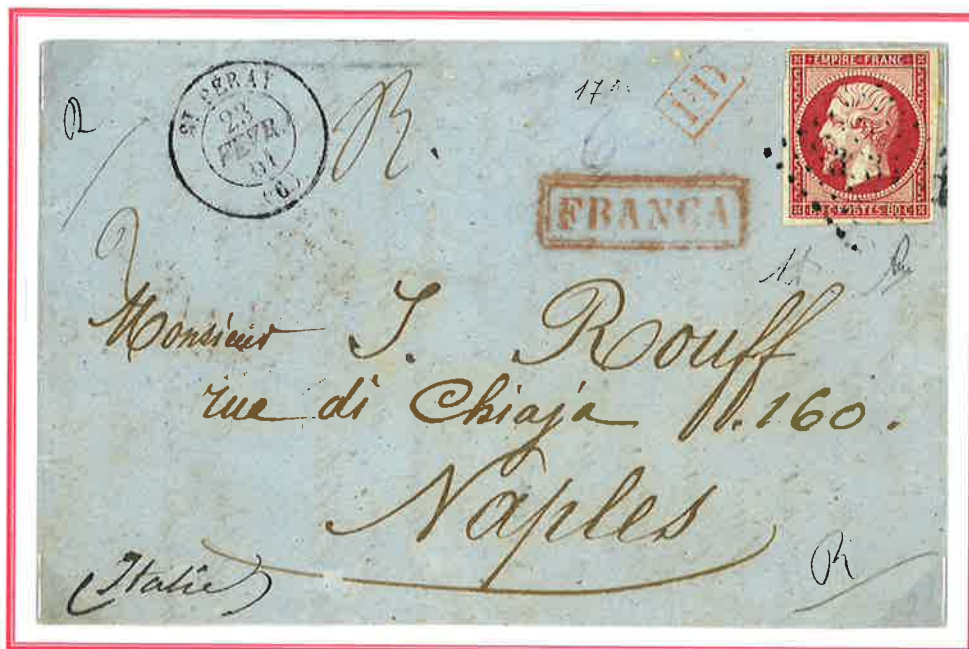 ST PERAY
23
FEVR.
61
(6)
R.
P.D
EMPIRE FRANC
POSTES 80 C
FRANCA
Monsieur J. Rouff
rue di Chiaja N. 160.
Naples
(Italie)